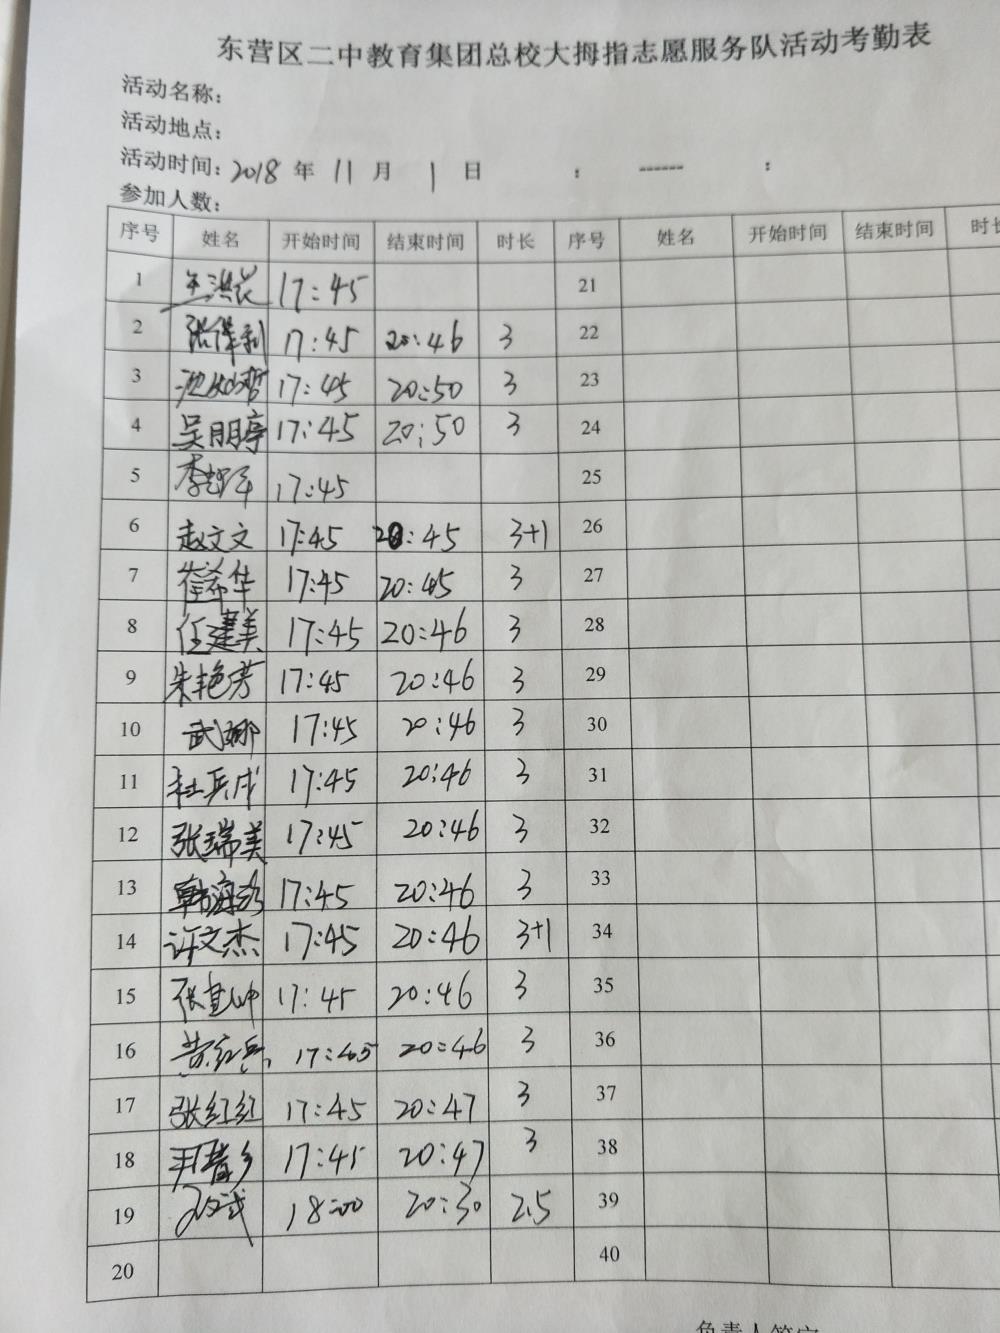 东营区二中教育集团总校大拇指志愿服务队活动考勤表
活动名称：
活动地点：
活动时间：2018 年 11 月 1 日 ： ------ ：
参加人数：
序号 姓名 开始时间 结束时间 时长 序号 姓名 开始时间 结束时间 时长
1 17:45 21
2 17:45 20:46 3 22
3 17:45 20:50 3 23
4 吴朋亭 17:45 20:50 3 24
5 17:45 25
6 赵文文 17:45 20:45 3+1 26
7 崔希华 17:45 20:45 3 27
8 任建美 17:45 20:46 3 28
9 朱艳芳 17:45 20:46 3 29
10 武娜 17:45 20:46 3 30
11 杜兵成 17:45 20:46 3 31
12 张瑞美 17:45 20:46 3 32
13 17:45 20:46 3 33
14 许文杰 17:45 20:46 3+1 34
15 17:45 20:46 3 35
16 黄红兵 17:45 20:46 3 36
17 张红红 17:45 20:47 3 37
18 17:45 20:47 3 38
19 18:00 20:30 2.5 39
20 40